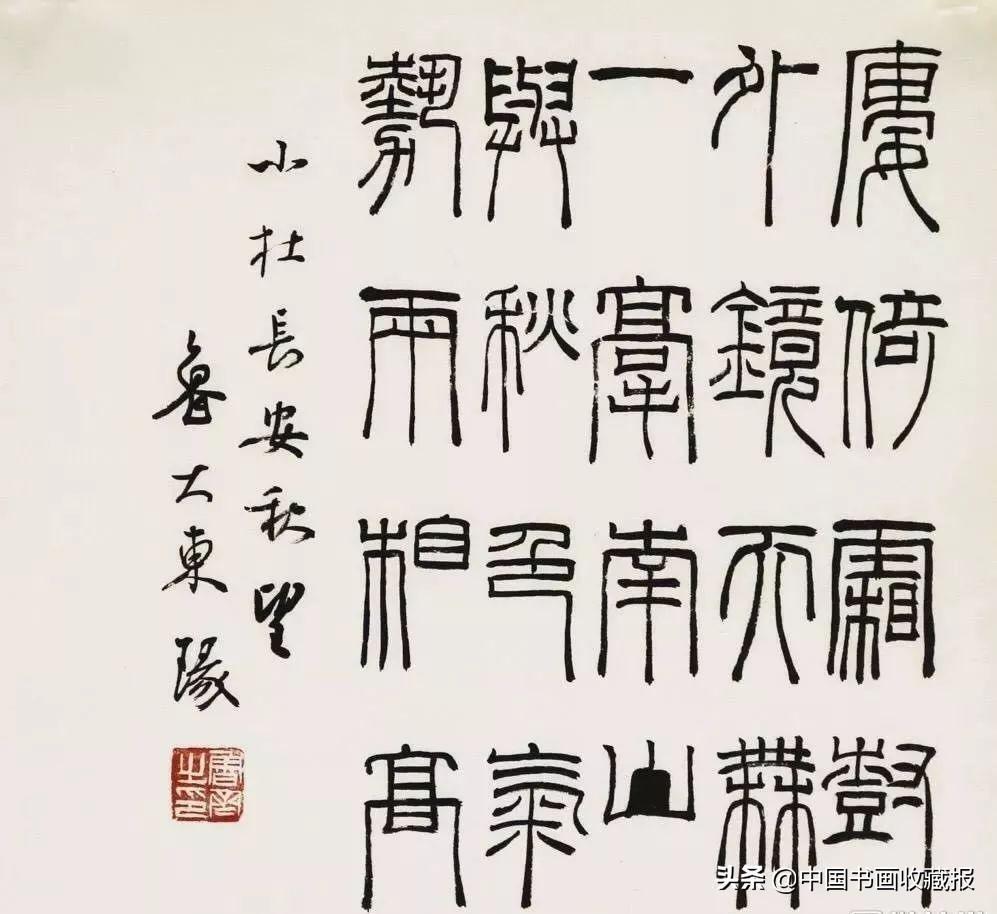 廔倚霜尌
外鏡天無
一毫南山
與秋色气
勢兩相高
小杜長安秋望
魯大東
头条 @中国书画收藏报